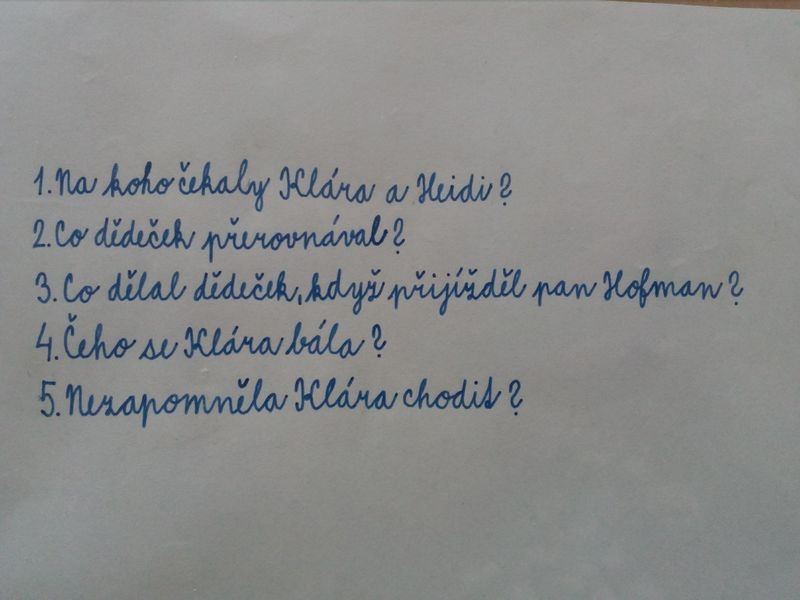 1. Na koho čekaly Klára a Heidi?
2. Co dědeček přerovnával?
3. Co dělal dědeček, když přijížděl pan Hofman?
4. Čeho se Klára bála?
5. Nezapomněla Klára chodit?